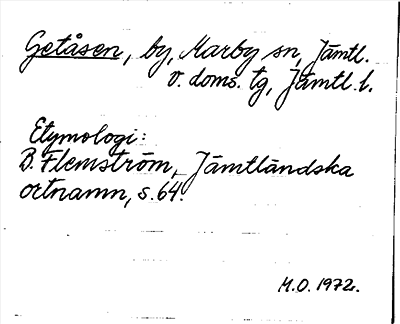 Getåsen, by, Marby sn, Jämtl.
v. doms. tg, Jämtl. l.
Etymologi:
B. Flemström, Jämtländska
ortnamn, s. 64.
M.O. 1972.